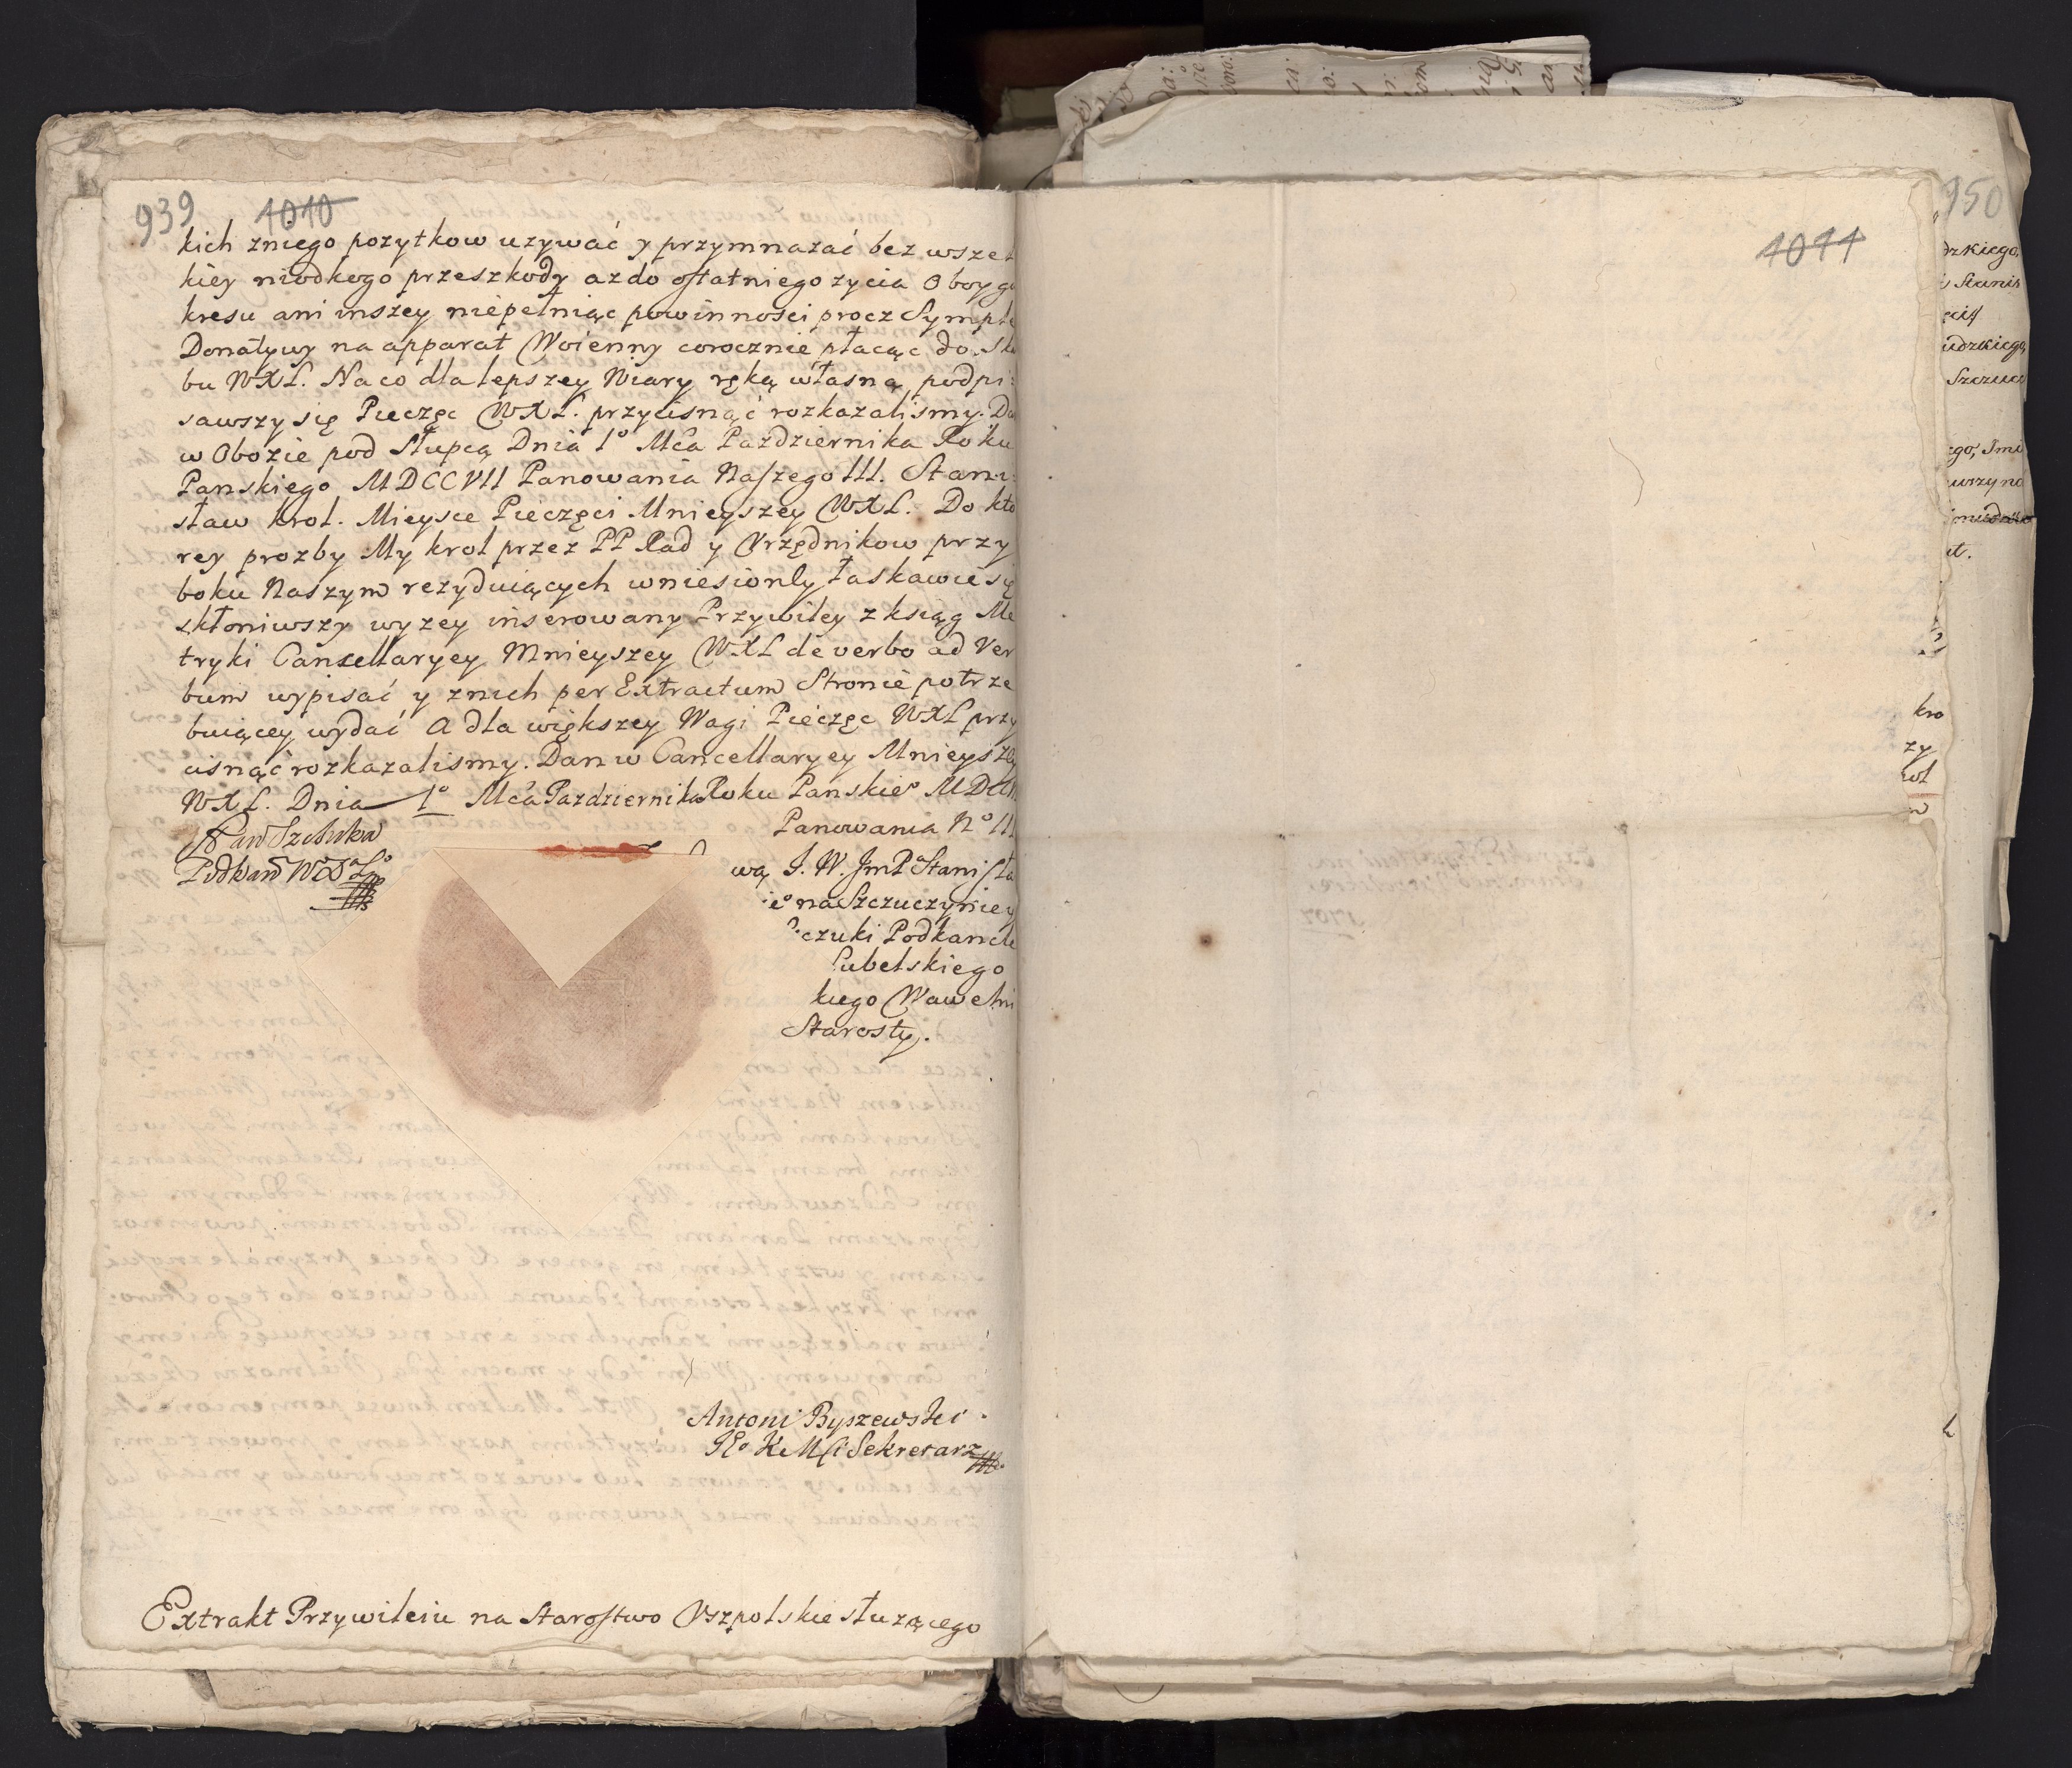 939 1010
kich zniego pozytkow uzywać y przymnazać bez wszel
kiey niodkogo przeszkody az do ostatniego zycia Oboyga
kresu ani inszey niepełniąc powinnosci procz Symple
Donatywy na apparat Woienny corocznie płacąc do Ska
bu WXL. Na co dla lepszey Wiary ręką własną podpi:
sawszy się Pieczęc WXL. przycisnąć rozkazalismy. Dan
w Obozie pod Słupcą Dnia 1º Mca Pazdziernika Roku
Panskiego MDCCVII Panowania Naszego III. Stani:
sław Krol. Mieysce Pieczęci Mnieyszey WXL. Do kto
rey prozby My krol przez PP Rad y Vrzędnikow przy
boku Naszym rezyduiących wniesionly łaskawie się
skłoniwszy wyzey inserowany Przywiley z ksiąg Me
tryki Cancellaryey Mnieyszey WXL de verbo ad Ver
bum wypisać y znich per Extractum Stronie potrze
buiącey wydać A dla większey Wagi Pieczęc WXL przy
cisnąć rozkazalismy. Dan w Cancellaryey Mnieyszey
WXL. Dnia 1º Mca Pazdziernika Roku Panskieº MDCCVII
Panowania Nº III
Szczuka
wą J. W. JmP Stanisła
eº na Szczuczyniey
czuki Podkancle
Lubelskiego
kiego Wawelni
Starosty.
Antoni Byszewski
Sekretarz
Extrakt Przywileiu na Starostwo Vszpolskie słuzącego
1011
950
dzkiego,
Stanis
ęcia
udzkiego
Szczuc
ego, Jmi
wrzyno
kro
zy